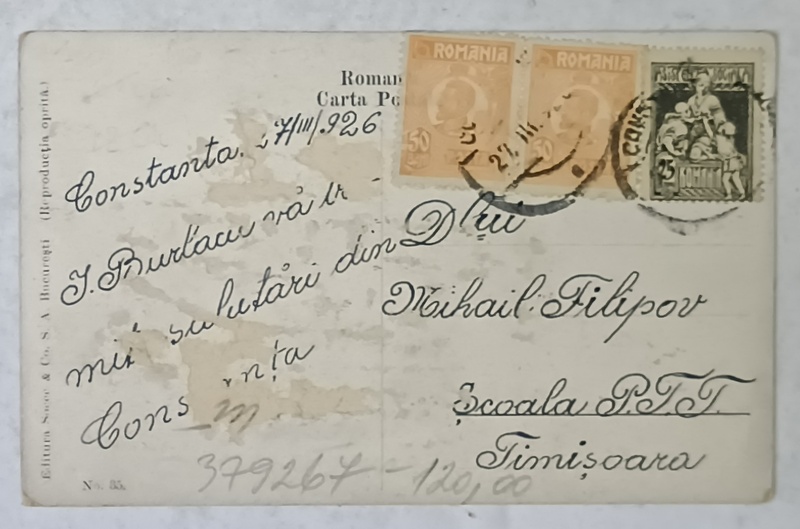 (Reproducția oprită.)
Editura Socec & Co. S. A. București
No. 35.
Roman
Carta Po
ROMANIA
50
ROMANIA
50
27. III.
CONS
25
Constanta. 27/III/.926
J. Burlacu vă tr -
mit salutări din
Cons nța
Dlui
Mihail Filipov
Școala P.T.T.
Timișoara
379267 - 120,00